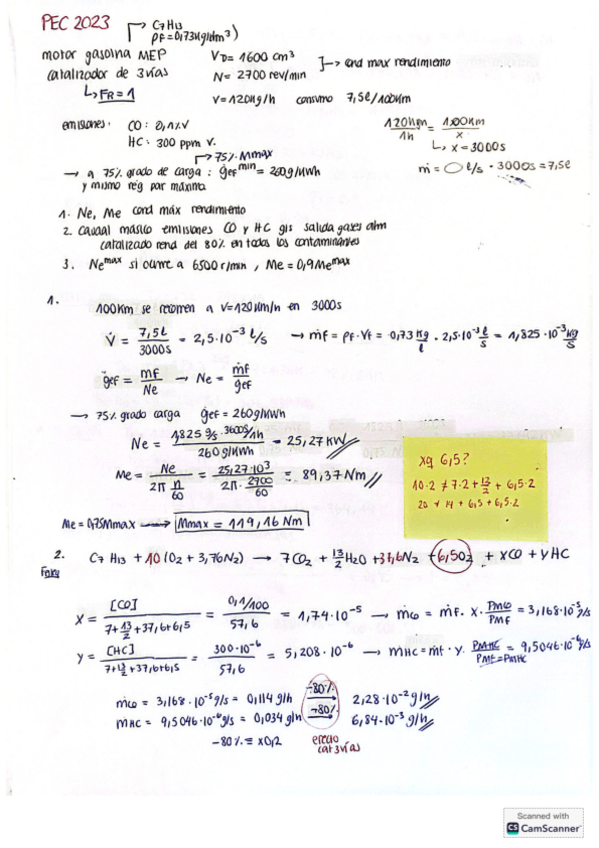 PEC 2023
C7H13
ρF = 0,73 kg/dm³)
motor gasolina MEP
catalizador de 3 vías
↳ FR = 1
VD = 1600 cm³
N = 2700 rev/min
→ cond max rendimiento
V = 120 Kg/h consumo 7,5l/100Km
emisiones: CO: 0,1%V
HC: 300 ppm V.
120Km/1h = 100Km/x
↳ x = 3000s
ṁ = ◯ l/s · 3000s = 7,5l
↱ 75% Mmax
→ a 75% grado de carga: gef min = 260g/KWh
y mismo reg par máximo
1. Ne, Me cond máx rendimiento
2. Caudal másico emisiones CO y HC g/s salida gases atm
catalizado rend del 80% en todos los contaminantes
3. Ne max si ocurre a 6500 r/min, Me = 0,9 Me max
1.
100Km se recorren a V=120Km/h en 3000s
V̇ = 7,5l/3000s = 2,5·10⁻³ l/s → ṁf = ρf · Vf = 0,73 Kg/l · 2,5·10⁻³ l/s = 1,825·10⁻³ Kg/s
gef = mf/Ne → Ne = ṁf/gef
→ 75% grado carga gef = 260g/KWh
Ne = 1,825 g/s · 3600s/1h / 260 g/KWh = 25,27 KW
Me = Ne / 2π n/60 = 25,27·10³ / 2π · 2700/60 = 89,37 Nm
Me = 0,75Mmax → Mmax = 119,16 Nm
xq 6,5?
10·2 ≠ 7·2 + 13/2 + 6,5·2
20 ≠ 14 + 6,5 + 6,5·2
2.
C7 H13 + 10(O2 + 3,76N2) → 7CO2 + 13/2 H2O + 37,6N2 + 6,5O2 + xCO + yHC
X = [CO] / 7+13/2+37,6+6,5 = 0,1/100 / 57,6 = 1,74·10⁻⁵ → ṁco = ṁf · X · PMco/PMf = 3,168·10⁻⁵ g/s
Y = [HC] / 7+13/2+37,6+6,5 = 300·10⁻⁶ / 57,6 = 5,208·10⁻⁶ → ṁHC = ṁf · y · PMHC/PMf=PMHC = 9,5046·10⁻⁶ g/s
ṁco = 3,168·10⁻⁵ g/s = 0,114 g/h −80% → 2,28·10⁻² g/h
ṁHC = 9,5046·10⁻⁶ g/s = 0,034 g/h −80% → 6,84·10⁻³ g/h
−80% ≡ x0,2
efecto
cat 3 vías
Scanned with
CS CamScanner